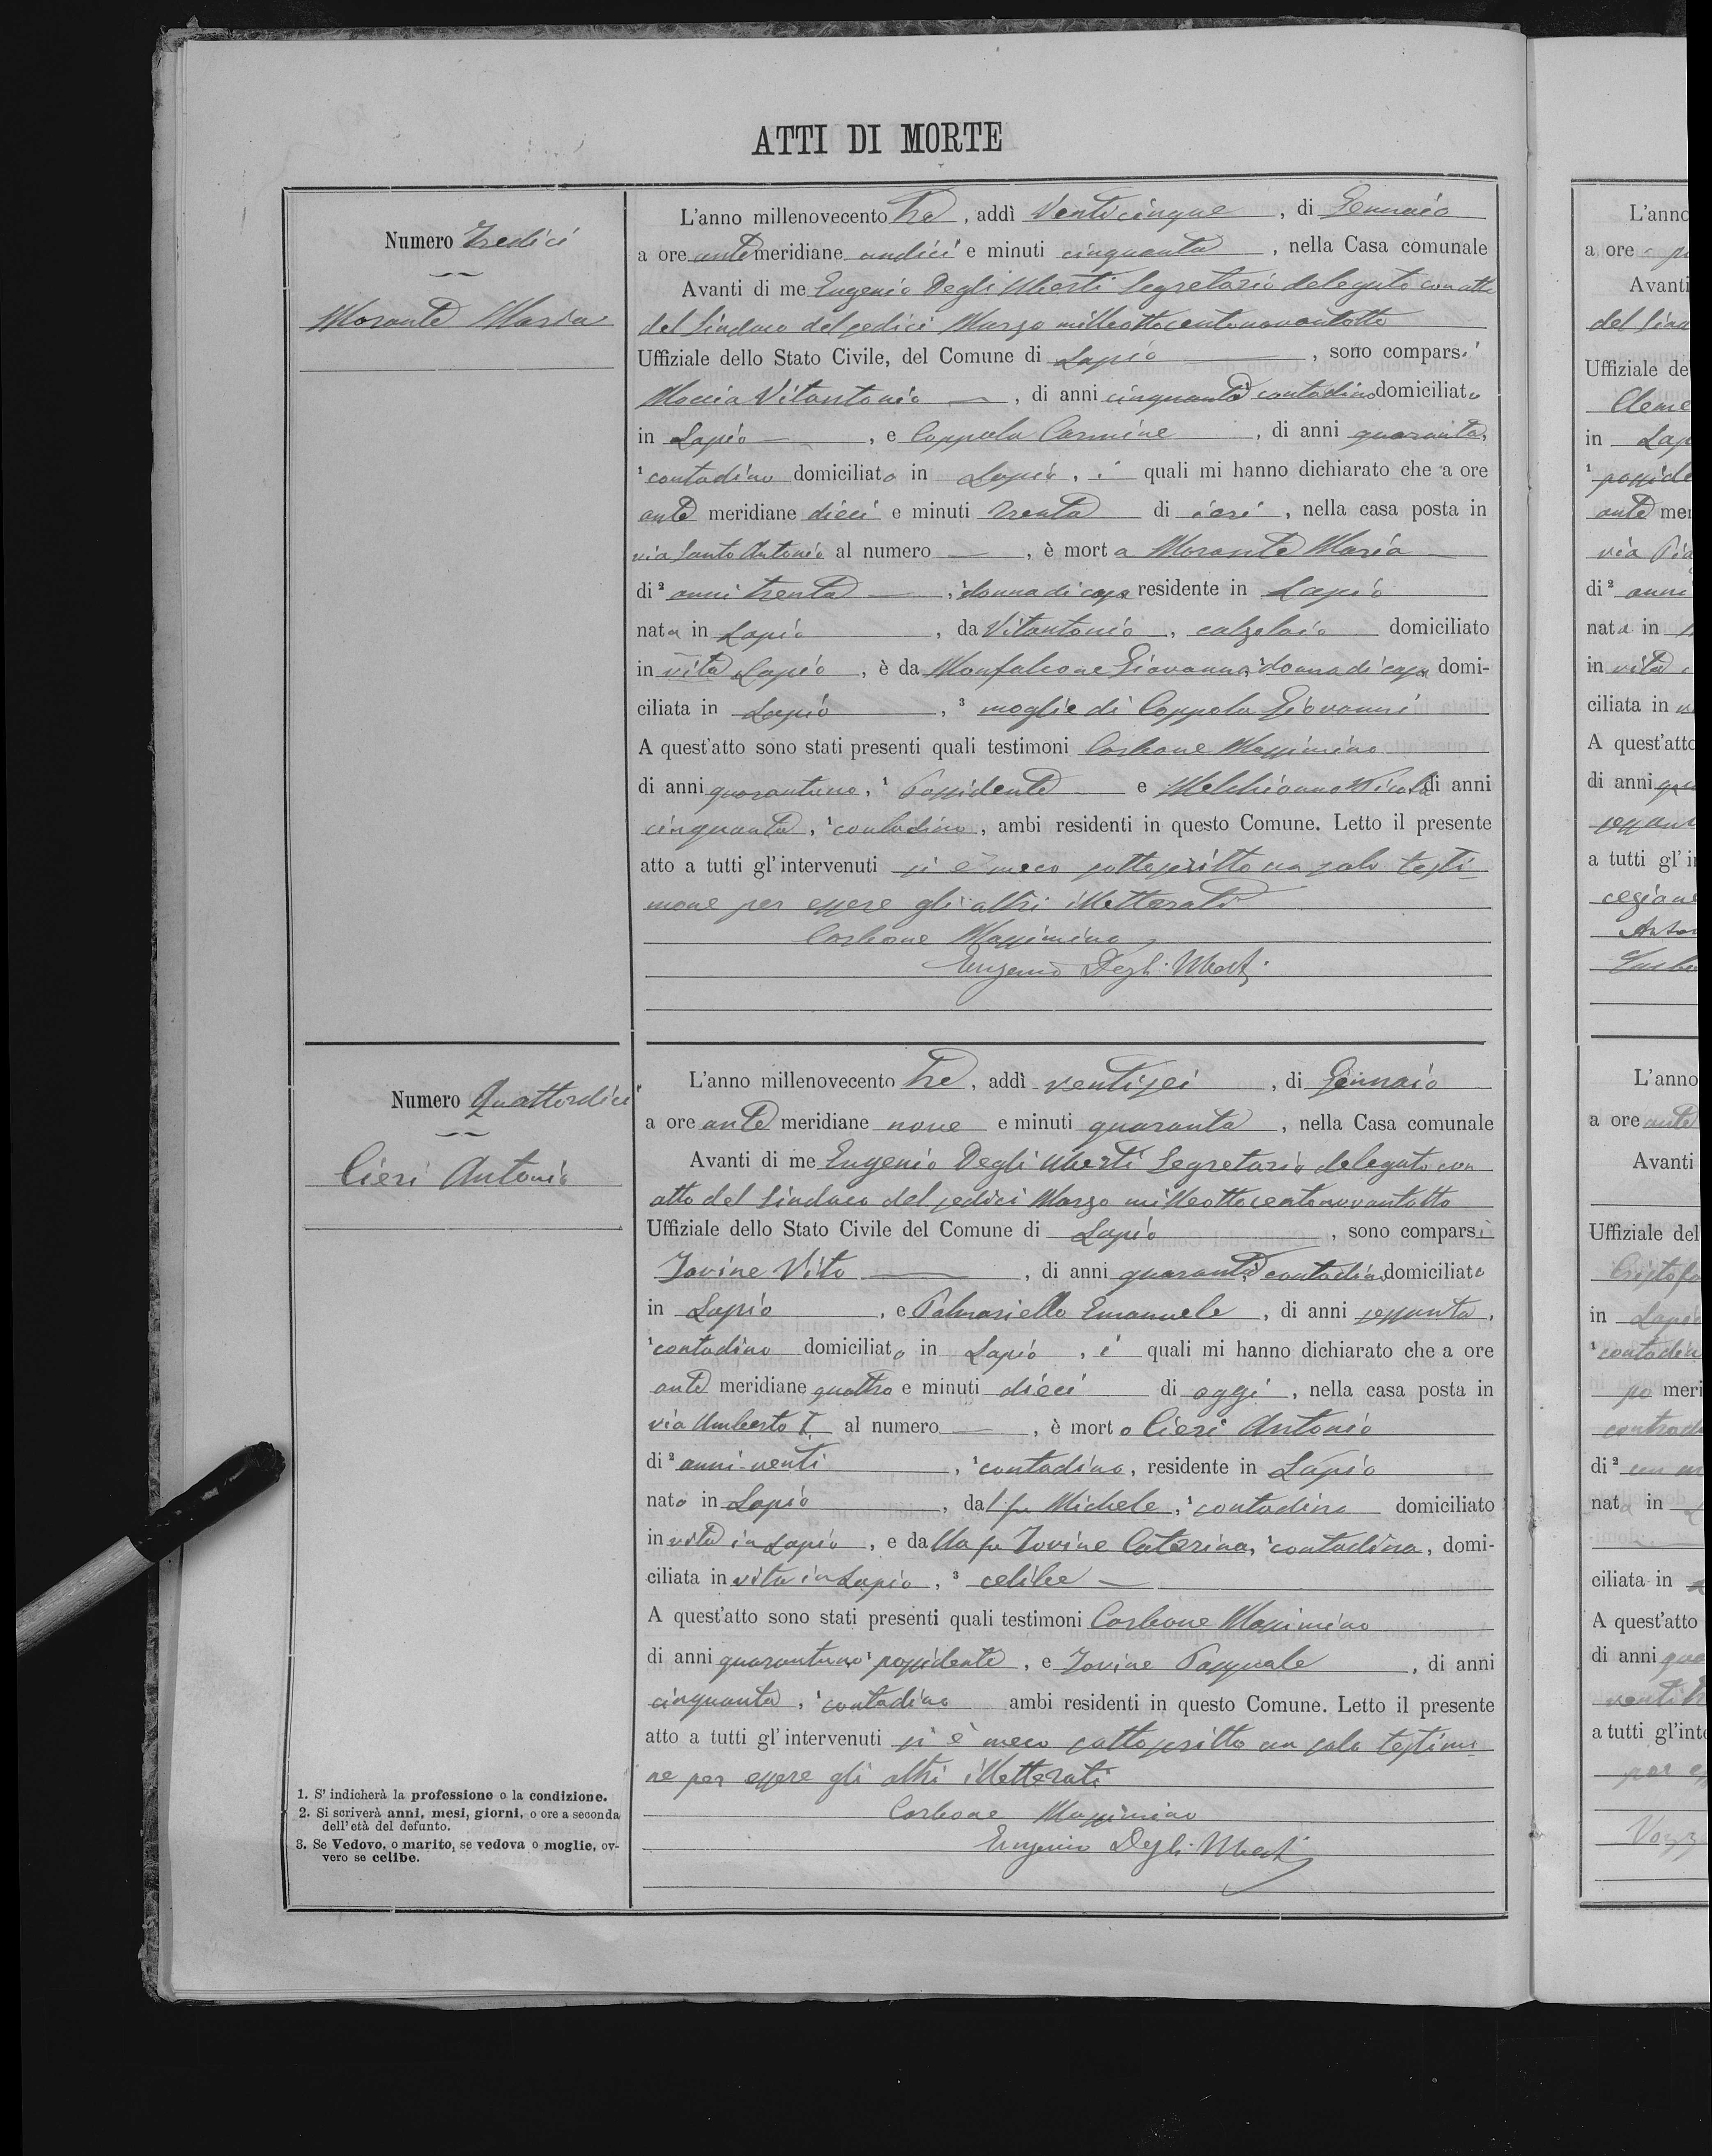 ATTI DI MORTE
Numero Tredici
Morante Maria
L'anno millenovecento tre, addì Venticinque, di Gennaio
a ore antemeridiane undici e minuti cinquanta, nella Casa comunale
Avanti di me Eugenio Degli Uberti Segretario delegato con atto
del Sindaco del sedici Marzo milleottocentonovantotto
Uffiziale dello Stato Civile, del Comune di Lapio, sono comparsi
Moccia Vitantonio, di anni cinquanta, contadino domiciliato
in Lapio, e Coppola Carmine, di anni quaranta,
1 contadino domiciliato in Lapio, i quali mi hanno dichiarato che a ore
ante meridiane dieci e minuti trenta di ieri, nella casa posta in
via Santo Antonio al numero —, è morta Morante Maria
di 2 anni trenta, 1 donna di casa residente in Lapio
nata in Lapio, da Vitantonio, calzolaio domiciliato
in vita Lapio, è da Monfalcone Giovanna, 1 donna di casa domi-
ciliata in Lapio, 3 moglie di Coppola Giovanni
A quest'atto sono stati presenti quali testimoni Carbone Massimino
di anni quarantuno, 1 Possidente e Melchionno Nicola di anni
cinquanta, 1 contadino, ambi residenti in questo Comune. Letto il presente
atto a tutti gl'intervenuti si è meco sottoscritto un solo testi-
mone per essere gli altri illetterati
Carbone Massimino
Eugenio Degli Uberti
Numero Quattordici
Cieri Antonio
L'anno millenovecento tre, addì ventisei, di Gennaio
a ore ante meridiane nove e minuti quaranta, nella Casa comunale
Avanti di me Eugenio Degli Uberti Segretario delegato con
atto del Sindaco del sedici Marzo milleottocentonovantotto
Uffiziale dello Stato Civile del Comune di Lapio, sono comparsi
Iovine Vito, di anni quaranta, contadino domiciliato
in Lapio, e Palmariello Emanuele, di anni sessanta,
1 contadino domiciliato in Lapio, i quali mi hanno dichiarato che a ore
ante meridiane quattro e minuti dieci di oggi, nella casa posta in
via Umberto I al numero —, è morto Cieri Antonio
di 2 anni venti, 1 contadino, residente in Lapio
nato in Lapio, dal fu Michele, 1 contadino domiciliato
in vita in Lapio, e dalla fu Iovine Caterina, 1 contadina, domi-
ciliata in vita in Lapio, 3 celibe
A quest'atto sono stati presenti quali testimoni Carbone Massimino
di anni quarantuno 1 possidente, e Iovine Pasquale, di anni
cinquanta, 1 contadino ambi residenti in questo Comune. Letto il presente
atto a tutti gl'intervenuti si è meco sottoscritto un solo testimo
ne per essere gli altri illetterati
Carbone Massimino
Eugenio Degli Uberti
1. S'indicherà la professione o la condizione.
2. Si scriverà anni, mesi, giorni, o ore a seconda
dell'età del defunto.
3. Se Vedovo, o marito, se vedova o moglie, ov-
vero se celibe.
L'anno
a ore
Avanti
del Sind
Uffiziale de
Cleme
in Lap
1 posside
ante mer
via Pia
di 2 anni
nata in
in vita
ciliata in
A quest'atto
di anni
a tutti gl'i
L'anno
a ore ante
Avanti
Uffiziale del
Cristofa
in Lapio
1 contadin
po meri
contrad
di 2 un
nata in
ciliata in
A quest'atto
di anni
a tutti gl'int
per